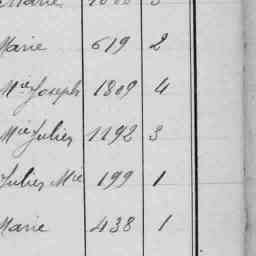 Marie 619 2
Mie Joseph 1809 4
Mie Julien 1192 3
Julien Mie 199 1
Marie 438 1